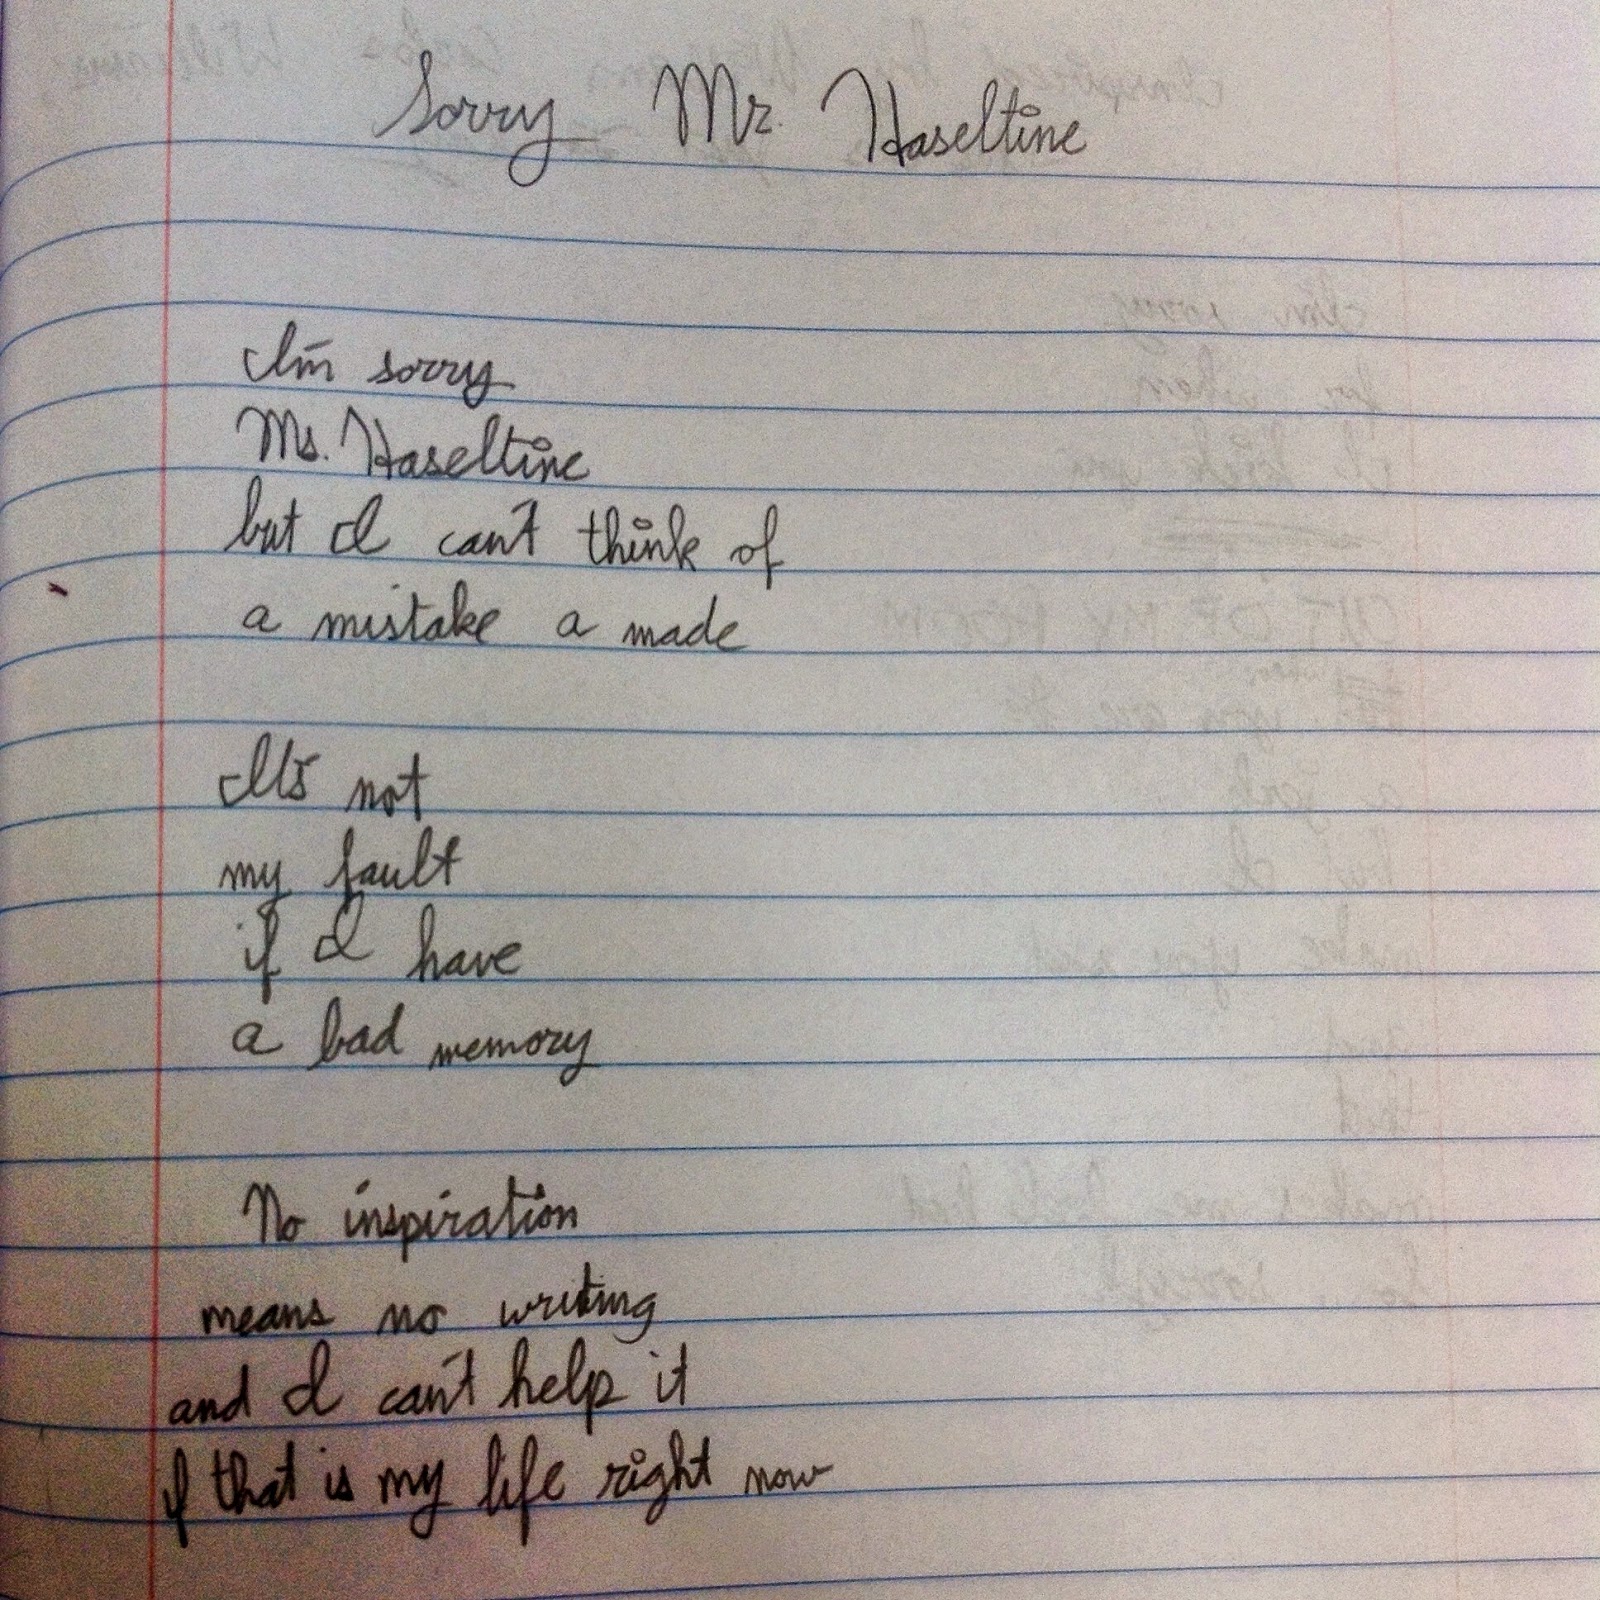 Sorry Mr. Haseltine
I'm sorry
Ms. Haseltine
but I can't think of
a mistake a made
It's not
my fault
if I have
a bad memory
No inspiration
means no writing
and I can't help it
if that is my life right now